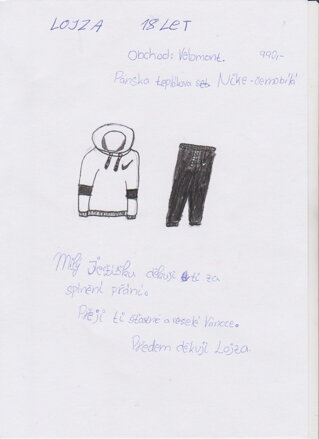 LOJZA 18 LET
Obchod: Velamont. 990,-
Pánska teplákova set Nike-černobílá
Milý Ježíšku děkuji ti za
splnění přání.
Přeji ti šťastné a veselé Vánoce.
Předem děkuji Lojza